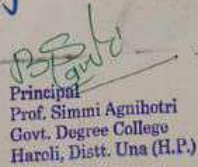 Principal
Prof. Simmi Agnihotri
Govt. Degree College
Haroli, Distt. Una (H.P.)